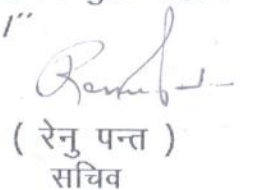 1"
( रेनु पन्त )
सचिव